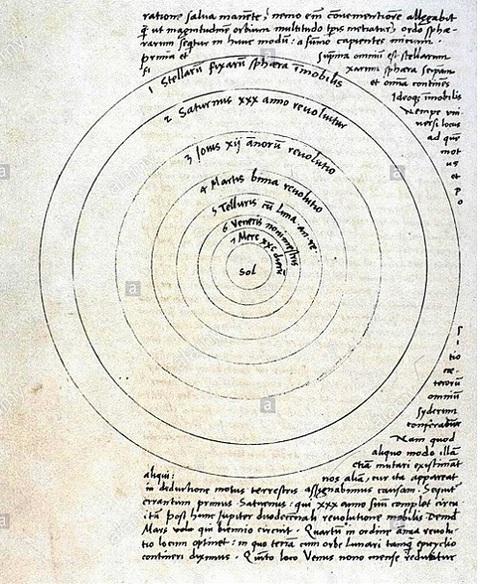 ratione salua manente, nemo em̄ conuenientiorē allegabit
q̄ ut magnitudinē orbium multitudo tp̄is metiatur, ordo sphæ-
rarum seqtur in hunc modū: a summo capientes initium.
prima et suprema omniū est stellarum
fixarum sphæra seipam
et omīa continēs
Ideoqȝ imobilis
nempe uni-
uersi locus
ad quē
mot
us
et
p
o
1 Stellarū fixarū sphæra īmobilis
2 Saturnus xxx anno reuoluitur
3 Jouis xij añorū reuolutio
4 Martis bima reuolutio
5 Telluris cū Luna an. re.
6 Veneris nonimestris
7 Merc xxc dierū
Sol
si
tio
ce-
terorū
omniū
syderum
conferatur
Nam quod
aliquo modo illā
etiā mutari existimāt
aliqui: nos aliā, cur ita appareat
in deductione motus terrestris assignabimus causam. Sequit
errantium primus Saturnus: qui xxx anno suū complet circu
itū post hunc Jupiter duodecennali reuolutione mobilis Demū
Mars uolo qui biennio circuit. Quartū in ordine annua reuolu-
tio locum optinet: in quo terrā cum orbe Lunari tanq̄ epicyclio
contineri diximus. Quīto loco Venus nono mense reducitur